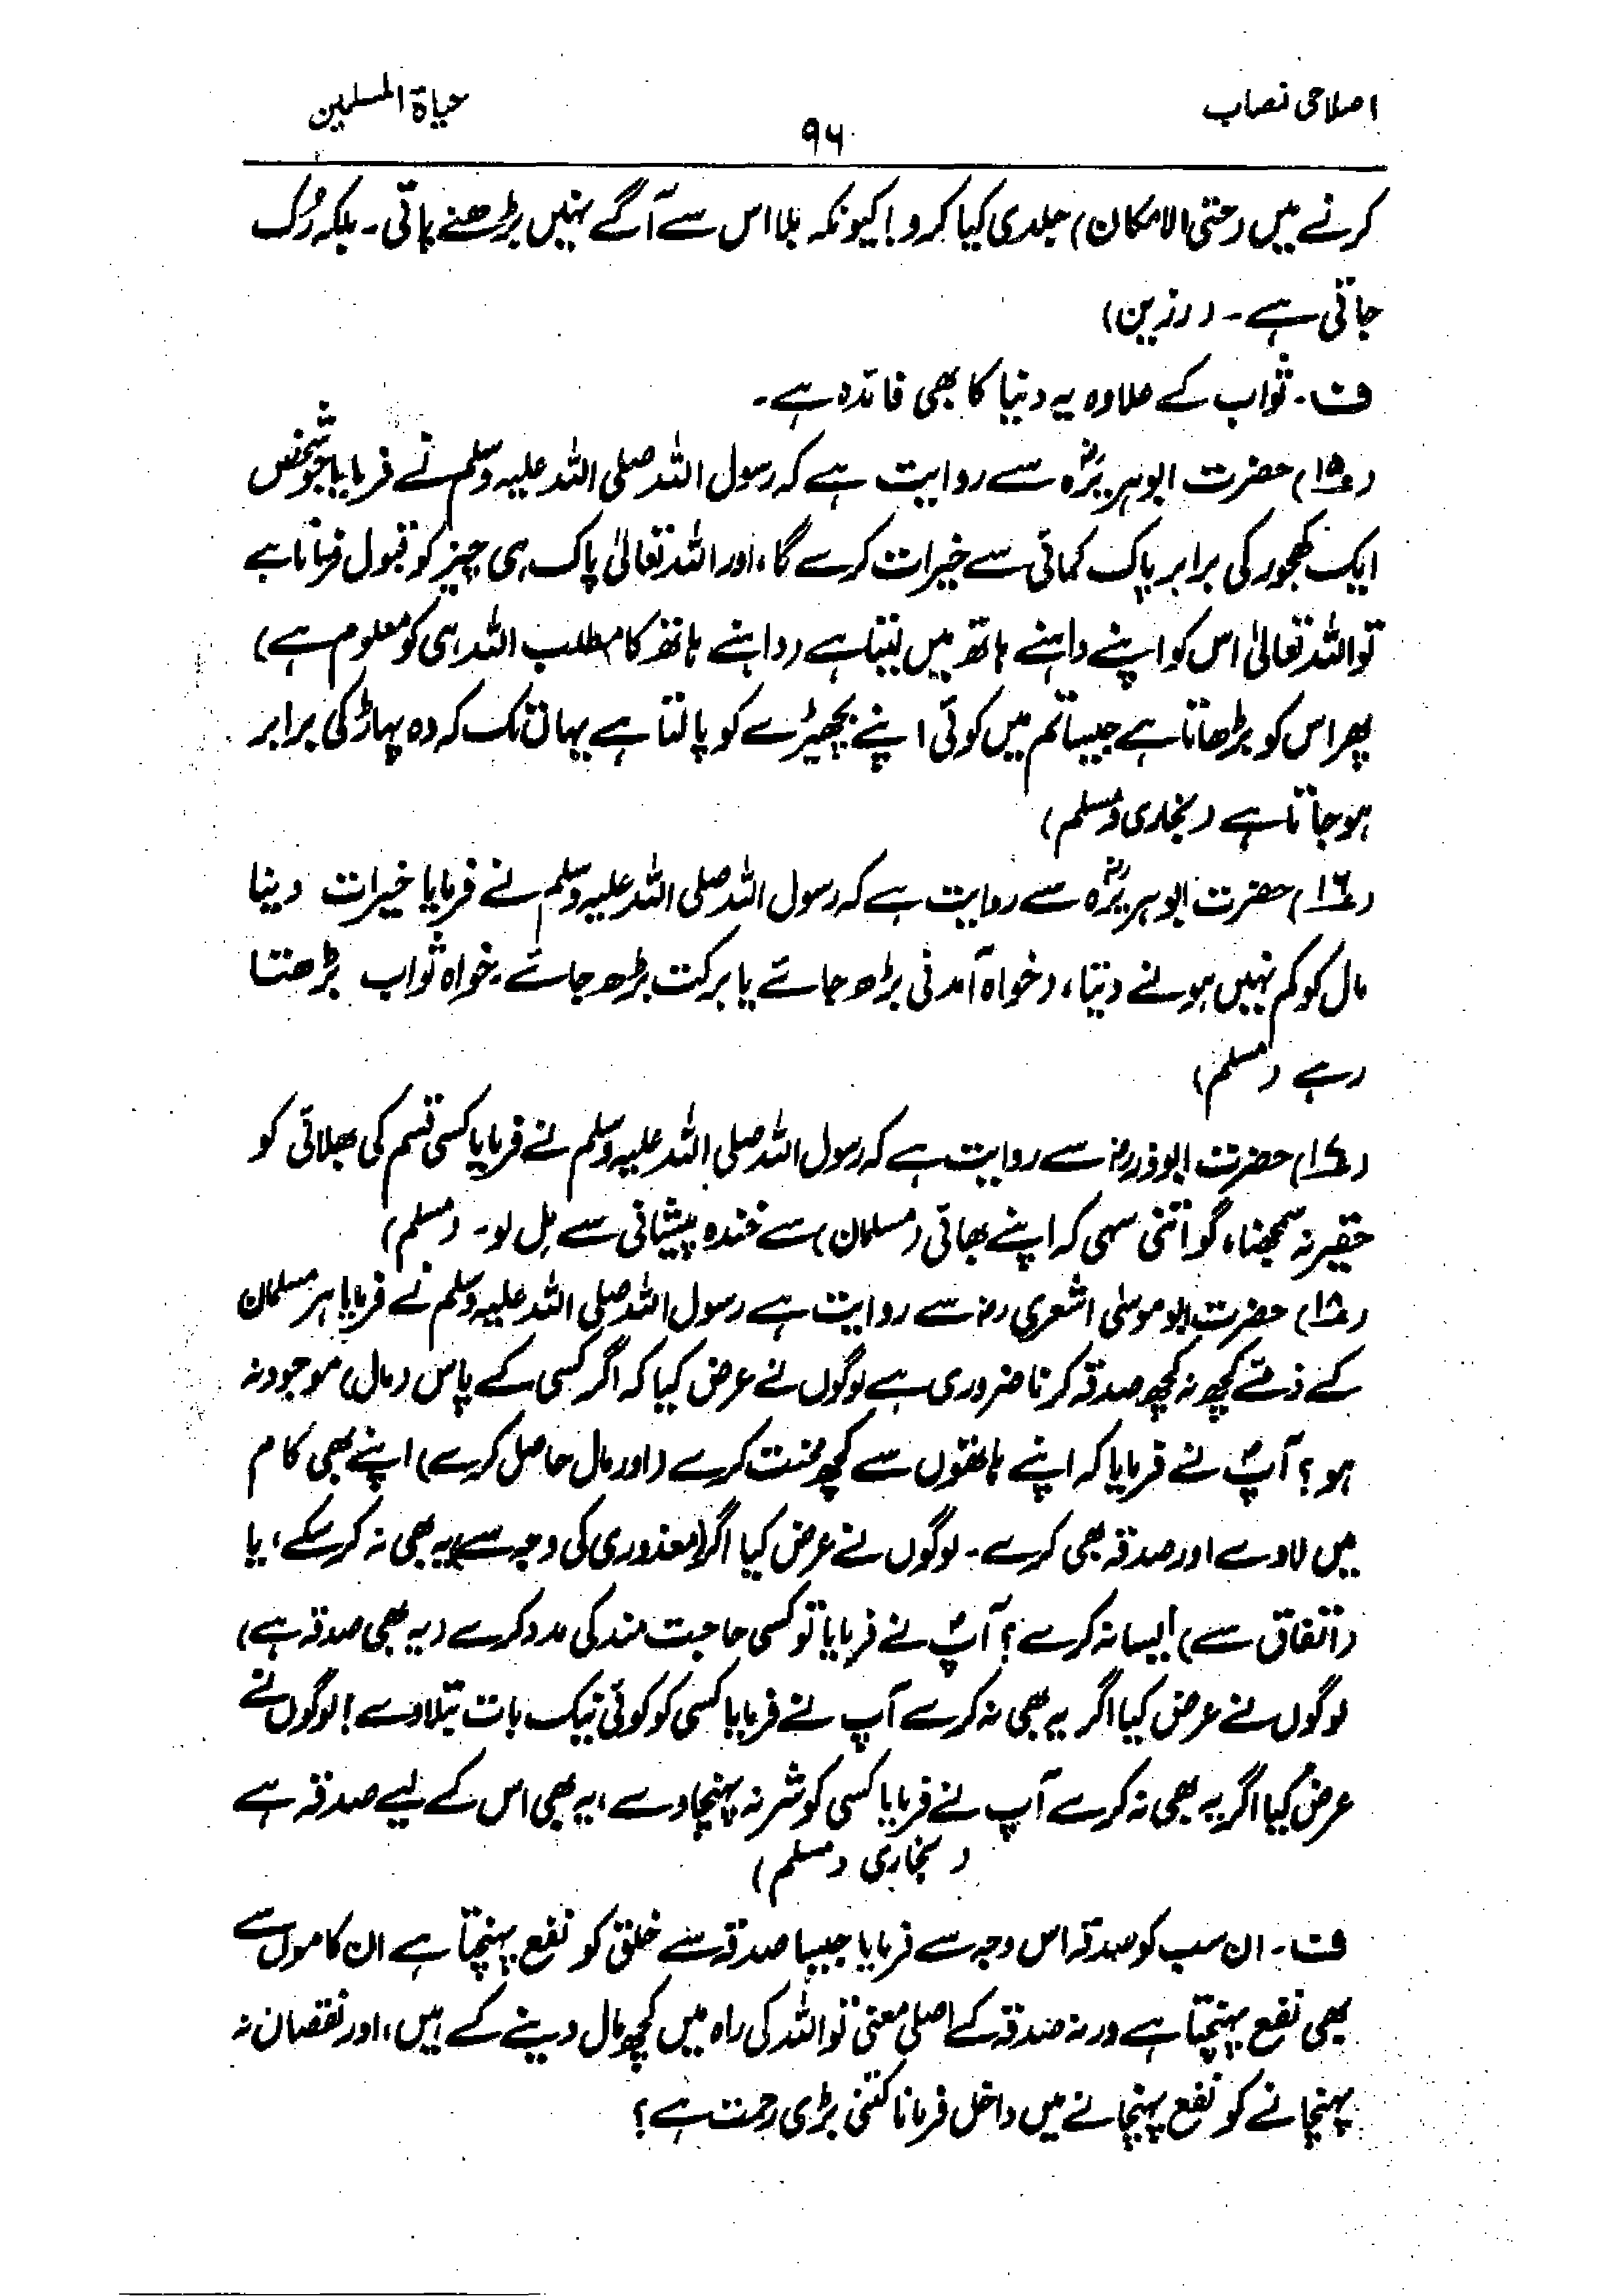 اصلاحی نصاب
۹۶
حیاۃ المسلمین
کرنے میں (حتی الامکان) جلدی کیا کرو! کیونکہ بلا اس سے آگے نہیں بڑھنے پاتی۔ بلکہ رُک
جاتی ہے۔ (رزین)
ف۔ ثواب کے علاوہ یہ دنیا کا بھی فائدہ ہے۔
(۱۵) حضرت ابوہریرہؓ سے روایت ہے کہ رسول اللہ صلی اللہ علیہ وسلم نے فرمایا جو شخص
ایک کھجور کی برابر پاک کمائی سے خیرات کرے گا، اور اللہ تعالیٰ پاک ہی چیز کو قبول فرماتا ہے
تو اللہ تعالیٰ اس کو اپنے داہنے ہاتھ میں لیتا ہے (داہنے ہاتھ کا مطلب اللہ ہی کو معلوم ہے)
پھر اس کو بڑھاتا ہے جیسا تم میں کوئی اپنے بچھیڑے کو پالتا ہے یہاں تک کہ وہ پہاڑ کی برابر
ہو جاتا ہے (بخاری ومسلم)
(۱۶) حضرت ابوہریرہؓ سے روایت ہے کہ رسول اللہ صلی اللہ علیہ وسلم نے فرمایا خیرات دینا
مال کو کم نہیں ہونے دیتا، (خواہ آمدنی بڑھ جائے یا برکت بڑھ جائے، خواہ ثواب بڑھتا
رہے (مسلم)
(۱۷) حضرت ابوذررضؓ سے روایت ہے کہ رسول اللہ صلی اللہ علیہ وسلم نے فرمایا کسی قسم کی بھلائی کو
حقیر نہ سمجھنا، گو اتنی سہی کہ اپنے بھائی (مسلمان) سے خندہ پیشانی سے مِل لو۔ (مسلم)
(۱۸) حضرت ابوموسیٰ اشعری رضؓ سے روایت ہے رسول اللہ صلی اللہ علیہ وسلم نے فرمایا ہر مسلمان
کے ذمّے کچھ نہ کچھ صدقہ کرنا ضروری ہے لوگوں نے عرض کیا کہ اگر کسی کے پاس (مال) موجود نہ
ہو؟ آپؐ نے فرمایا کہ اپنے ہاتھوں سے کچھ محنت کرے (اور مال حاصل کرے) اپنے بھی کام
میں لاوے اور صدقہ بھی کرے۔ لوگوں نے عرض کیا اگر (معذوری کی وجہ سے) یہ بھی نہ کرسکے، یا
(اتفاق سے) ایسا نہ کرے؟ آپؐ نے فرمایا تو کسی حاجت مند کی مدد کرے (یہ بھی صدقہ ہے)
لوگوں نے عرض کیا اگر یہ بھی نہ کرے آپ نے فرمایا کسی کو کوئی نیک بات بتلادے! لوگوں نے
عرض کیا اگر یہ بھی نہ کرے آپ نے فرمایا کسی کو شر نہ پہنچا دے، یہ بھی اس کے لیے صدقہ ہے
(بخاری ومسلم)
ف۔ ان سب کو صدقہ اس وجہ سے فرمایا جیسا صدقہ سے خلق کو نفع پہنچتا ہے ان کاموں سے
بھی نفع پہنچتا ہے ورنہ صدقہ کے اصلی معنی تو اللہ کی راہ میں کچھ مال دینے کے ہیں، اور نقصان نہ
پہنچانے کو نفع پہنچانے میں داخل فرمانا کتنی بڑی رحمت ہے؟